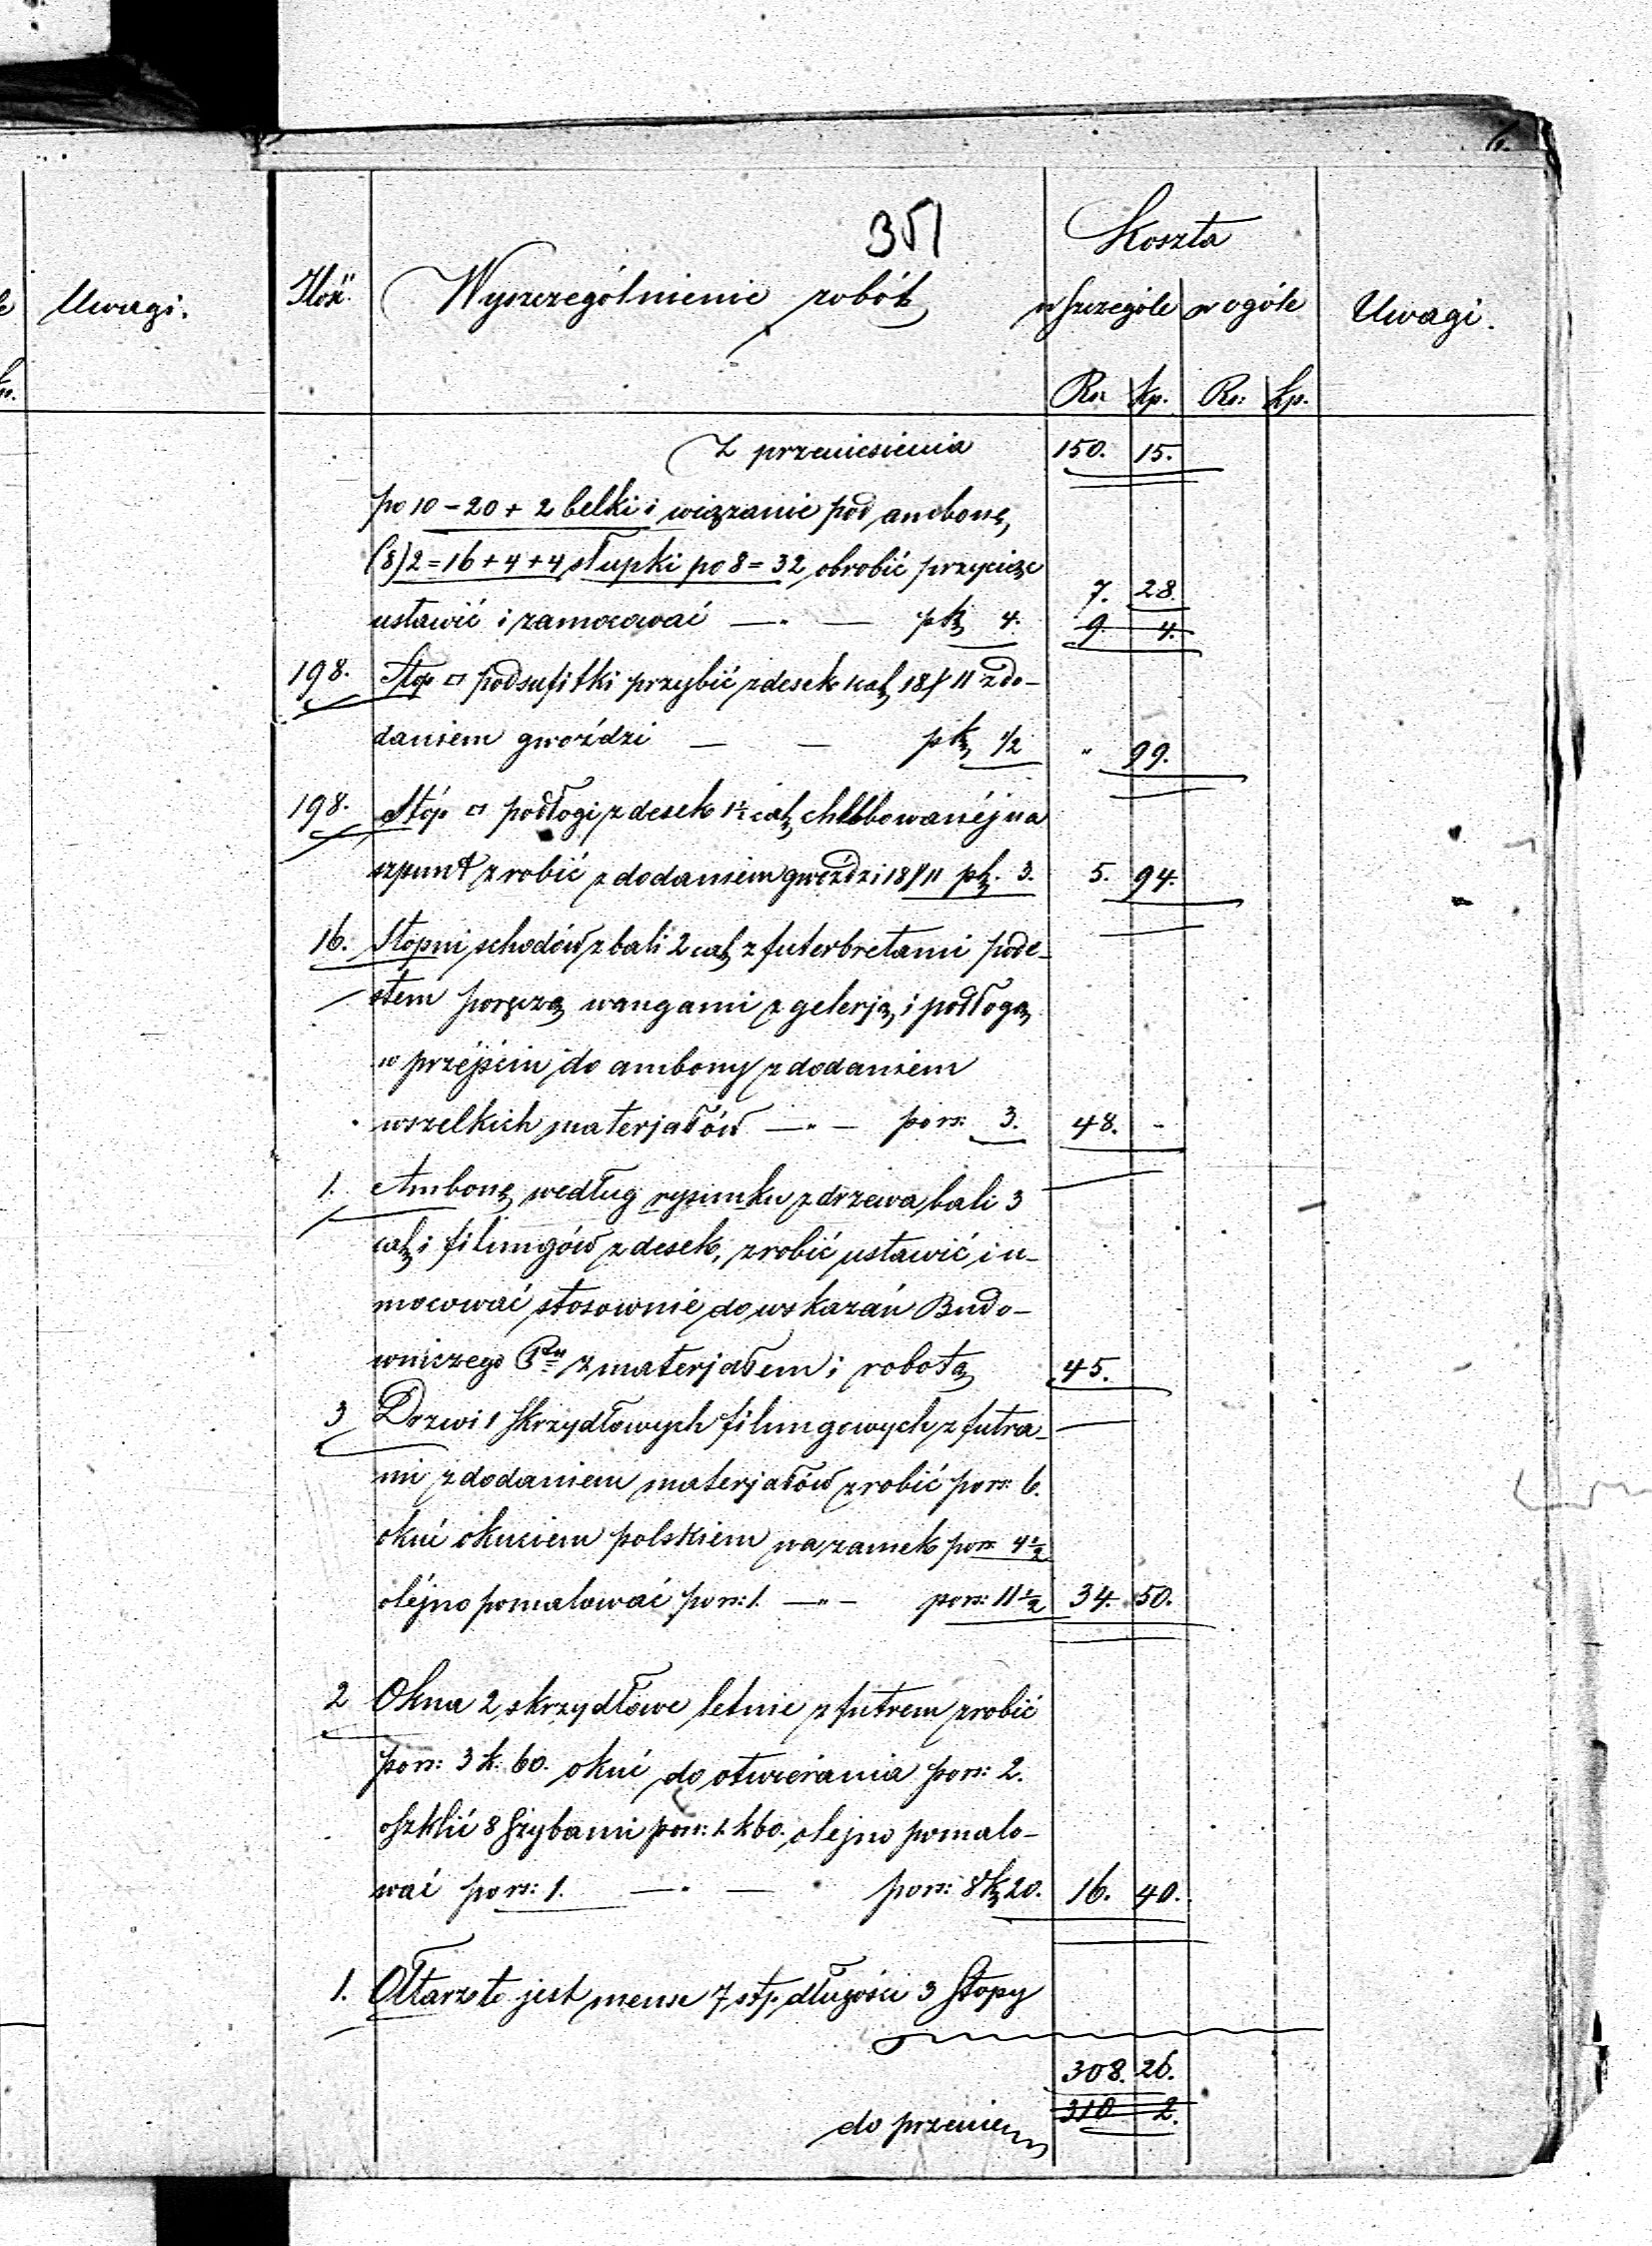 351
Koszta
Uwagi. Ilość. Wyszczególnienie robót w szczególe w ogóle Uwagi.
Rs. Kp. Rs: Kp.
Z przeniesienia 150. 15.
po 10 - 20 + 2 belki i wiązanie pod ambonę,
(8)2 = 16 + 4 + 4 słupki po 8 = 32, obrobić przyciąć
7. 28.
ustawić i zamocować —„— pk 4. 9. 4.
198. Stóp □ podsufitki przybić z desek cal 18/11 z do-
daniem gwoździ — — pk 1/2 „ 99.
198. Stóp □ podłogi z desek 1½ cal, chlblowanéj na
szpunt zrobić z dodaniem gwoździ 18/11 pk. 3. 5. 94.
16. Stopni schodów z bali 2 cal z futerbretami pode-
stem poręczą wangami z gelerją, i podłogą
w przejściu do ambony z dodaniem
wszelkich materjałów —„— po rs: 3. 48. -
1. Ambonę według rysunku z drzewa bali 3
cal i filungów z desek, zrobić ustawić i u-
mocować stosownie do wskazań Budo-
wniczego z materjałem i robotą 45.
3 Drzwi 1 skrzydłowych filungowych z futra-
mi z dodaniem materjałów zrobić po rs: 6.
okuć okuciem polskiem na zamek po rs: 4½
oléjno pomalować po rs: 1. —„— po rs: 11½ 34. 50.
2 Okna 2 skrzydłowe letnie z futrem zrobić
po rs: 3 k. 60. okuć do otwiérania po rs: 2.
oszklić 8 szybami po rs: 1. k 60. olejno pomalo-
wać po rs: 1. —„— po rs: 8 k 20. 16. 40.
1. Ołtarz to jest mense 7 stp. długości 3 Stopy
308. 26.
do przenie 310 2.